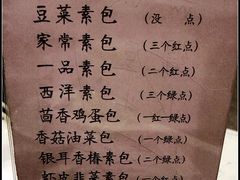 豆菜素包 （没 点）
家常素包 （三个红点）
一品素包 （二个红点）
西洋素包 （三个绿点）
茴香鸡蛋包 （一红一绿点）
香菇油菜包 （一个绿点）
银耳香椿素包 （二个绿点）
虾皮韭菜素包 （二个点）